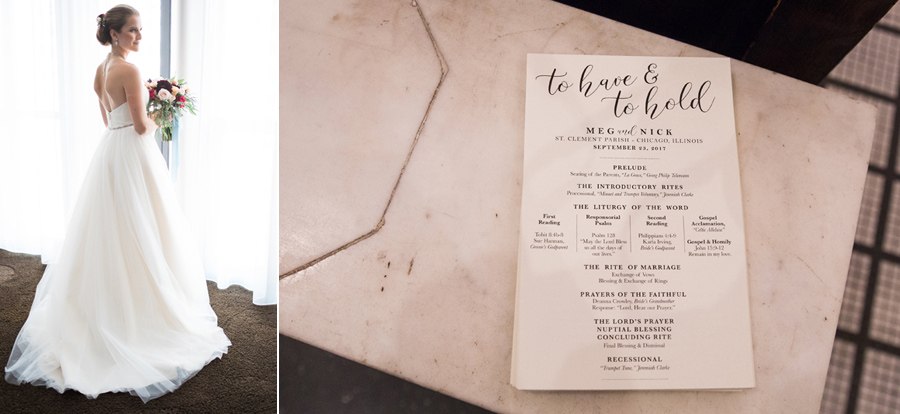 to have &
to hold
MEG and NICK
ST. CLEMENT PARISH - CHICAGO, ILLINOIS
SEPTEMBER 23, 2017
PRELUDE
Seating of the Parents, "La Grace," Georg Philip Telemann
THE INTRODUCTORY RITES
Processional, "Minuet and Trumpet Voluntary," Jeremiah Clarke
THE LITURGY OF THE WORD
First
Reading
Tobit 8:4b-8
Sue Harman,
Groom's Godparent
Responsorial
Psalm
Psalm 128
"May the Lord Bless
us all the days of
our lives."
Second
Reading
Philippians 4:4-9
Karla Irving,
Bride's Godparent
Gospel
Acclamation,
"Celtic Alleluia"
Gospel & Homily
John 15:9-12
Remain in my love.
THE RITE OF MARRIAGE
Exchange of Vows
Blessing & Exchange of Rings
PRAYERS OF THE FAITHFUL
Deanna Crowley, Bride's Grandmother
Response: "Lord, Hear our Prayer."
THE LORD'S PRAYER
NUPTIAL BLESSING
CONCLUDING RITE
Final Blessing & Dismissal
RECESSIONAL
"Trumpet Tune," Jeremiah Clarke